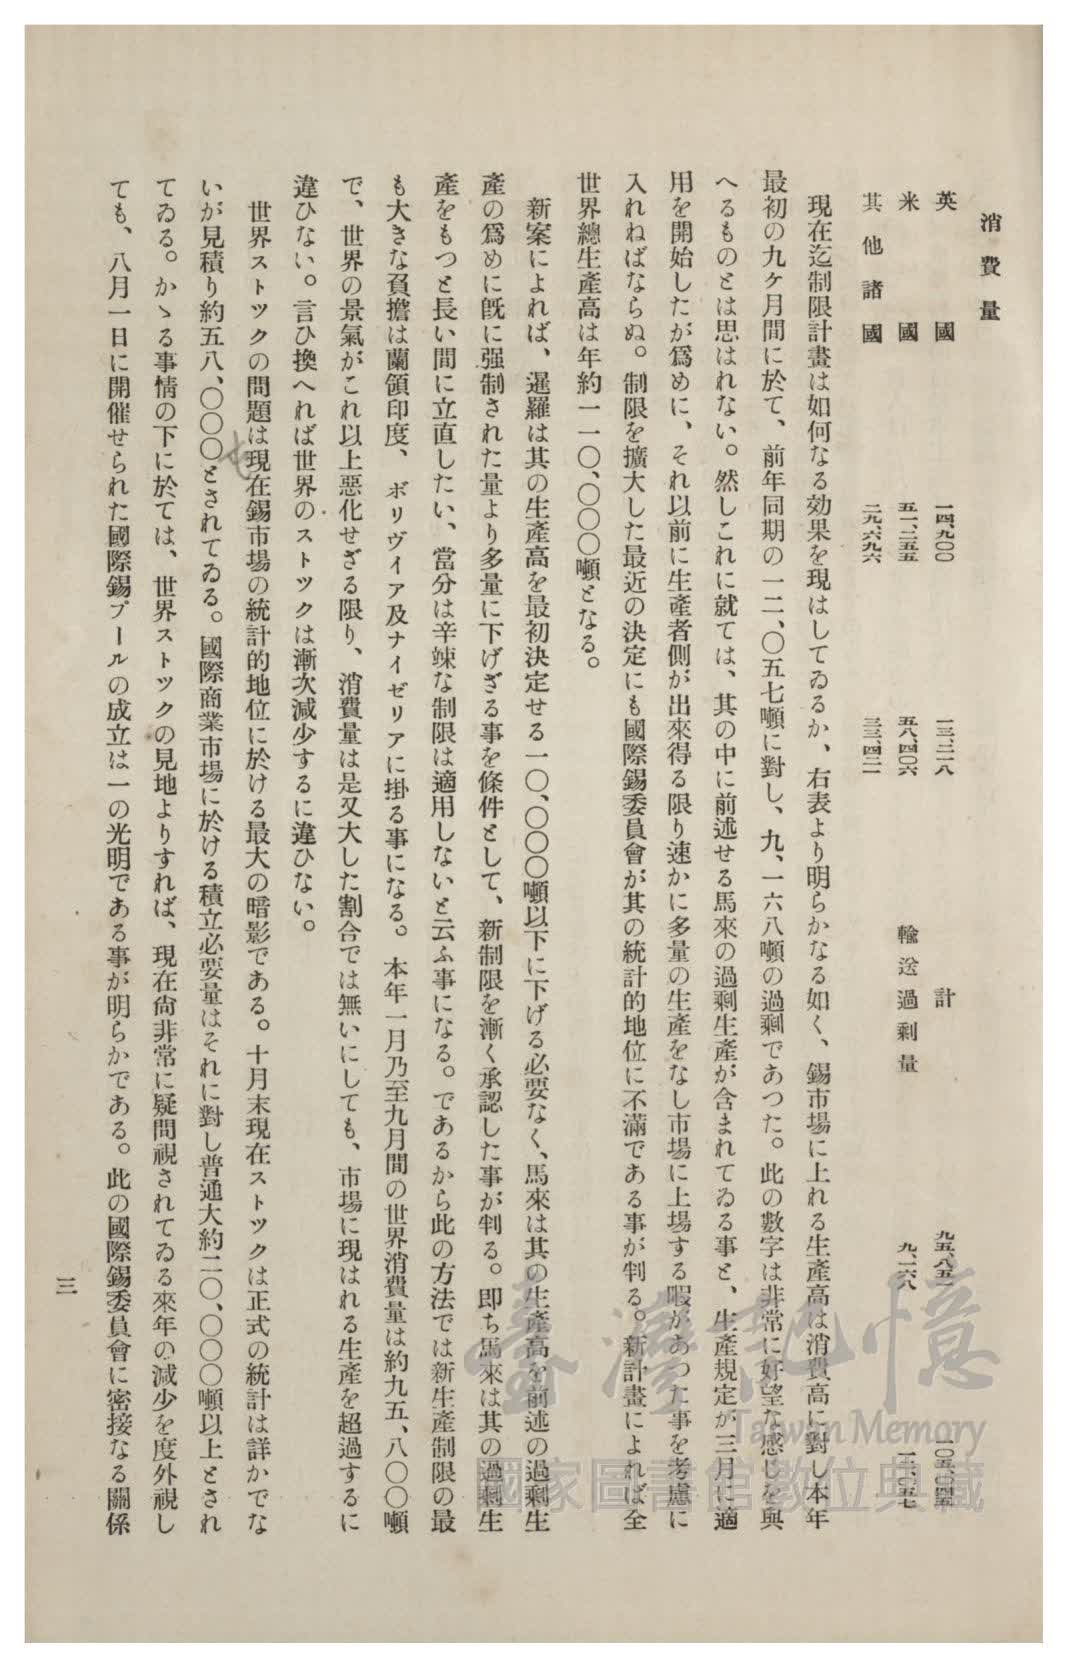 消費量
英國　一四、九〇〇　一三、二一八　計　九五、八五一　一〇五、〇四五
米國　五一、二五五　五八、四〇六　輸送過剩量　九、一六八　一二、〇五七
其他諸國　二九、六九六　三三、四二一
現在迄制限計畫は如何なる効果を現はしてゐるか、右表より明らかなる如く、錫市場に上れる生產高は消費高に對し本年
最初の九ケ月間に於て、前年同期の一二、〇五七噸に對し、九、一六八噸の過剩であつた。此の數字は非常に好望な感じを與
へるものとは思はれない。然しこれに就ては、其の中に前述せる馬來の過剩生產が含まれてゐる事と、生產規定が三月に適
用を開始したが爲めに、それ以前に生產者側が出來得る限り速かに多量の生產をなし市場に上場する暇があつた事を考慮に
入れねばならぬ。制限を擴大した最近の決定にも國際錫委員會が其の統計的地位に不滿である事が判る。新計畫によれば全
世界總生產高は年約一一〇、〇〇〇噸となる。
新案によれば、暹羅は其の生產高を最初決定せる一〇、〇〇〇噸以下に下げる必要なく、馬來は其の生產高を前述の過剩生
產の爲めに旣に强制された量より多量に下げざる事を條件として、新制限を漸く承認した事が判る。卽ち馬來は其の過剩生
產をもつと長い間に立直したい、當分は辛竦な制限は適用しないと云ふ事になる。であるから此の方法では新生產制限の最
も大きな負擔は蘭領印度、ボリヴイア及ナイゼリアに掛る事になる。本年一月乃至九月間の世界消費量は約九五、八〇〇噸
で、世界の景氣がこれ以上惡化せざる限り、消費量は是又大した割合では無いにしても、市場に現はれる生產を超過するに
違ひない。言ひ換へれば世界のストツクは漸次減少するに違ひない。
世界ストツクの問題は現在錫市場の統計的地位に於ける最大の暗影である。十月末現在ストツクは正式の統計は詳かでな
いが見積り約五八、〇〇〇とされてゐる。國際商業市場に於ける積立必要量はそれに對し普通大約二〇、〇〇〇噸以上とされ
てゐる。かゝる事情の下に於ては、世界ストツクの見地よりすれば、現在尙非常に疑問視されてゐる來年の減少を度外視し
ても、八月一日に開催せられた國際錫プールの成立は一の光明である事が明らかである。此の國際錫委員會に密接なる關係
三
臺灣記憶
Taiwan Memory
國家圖書館數位典藏